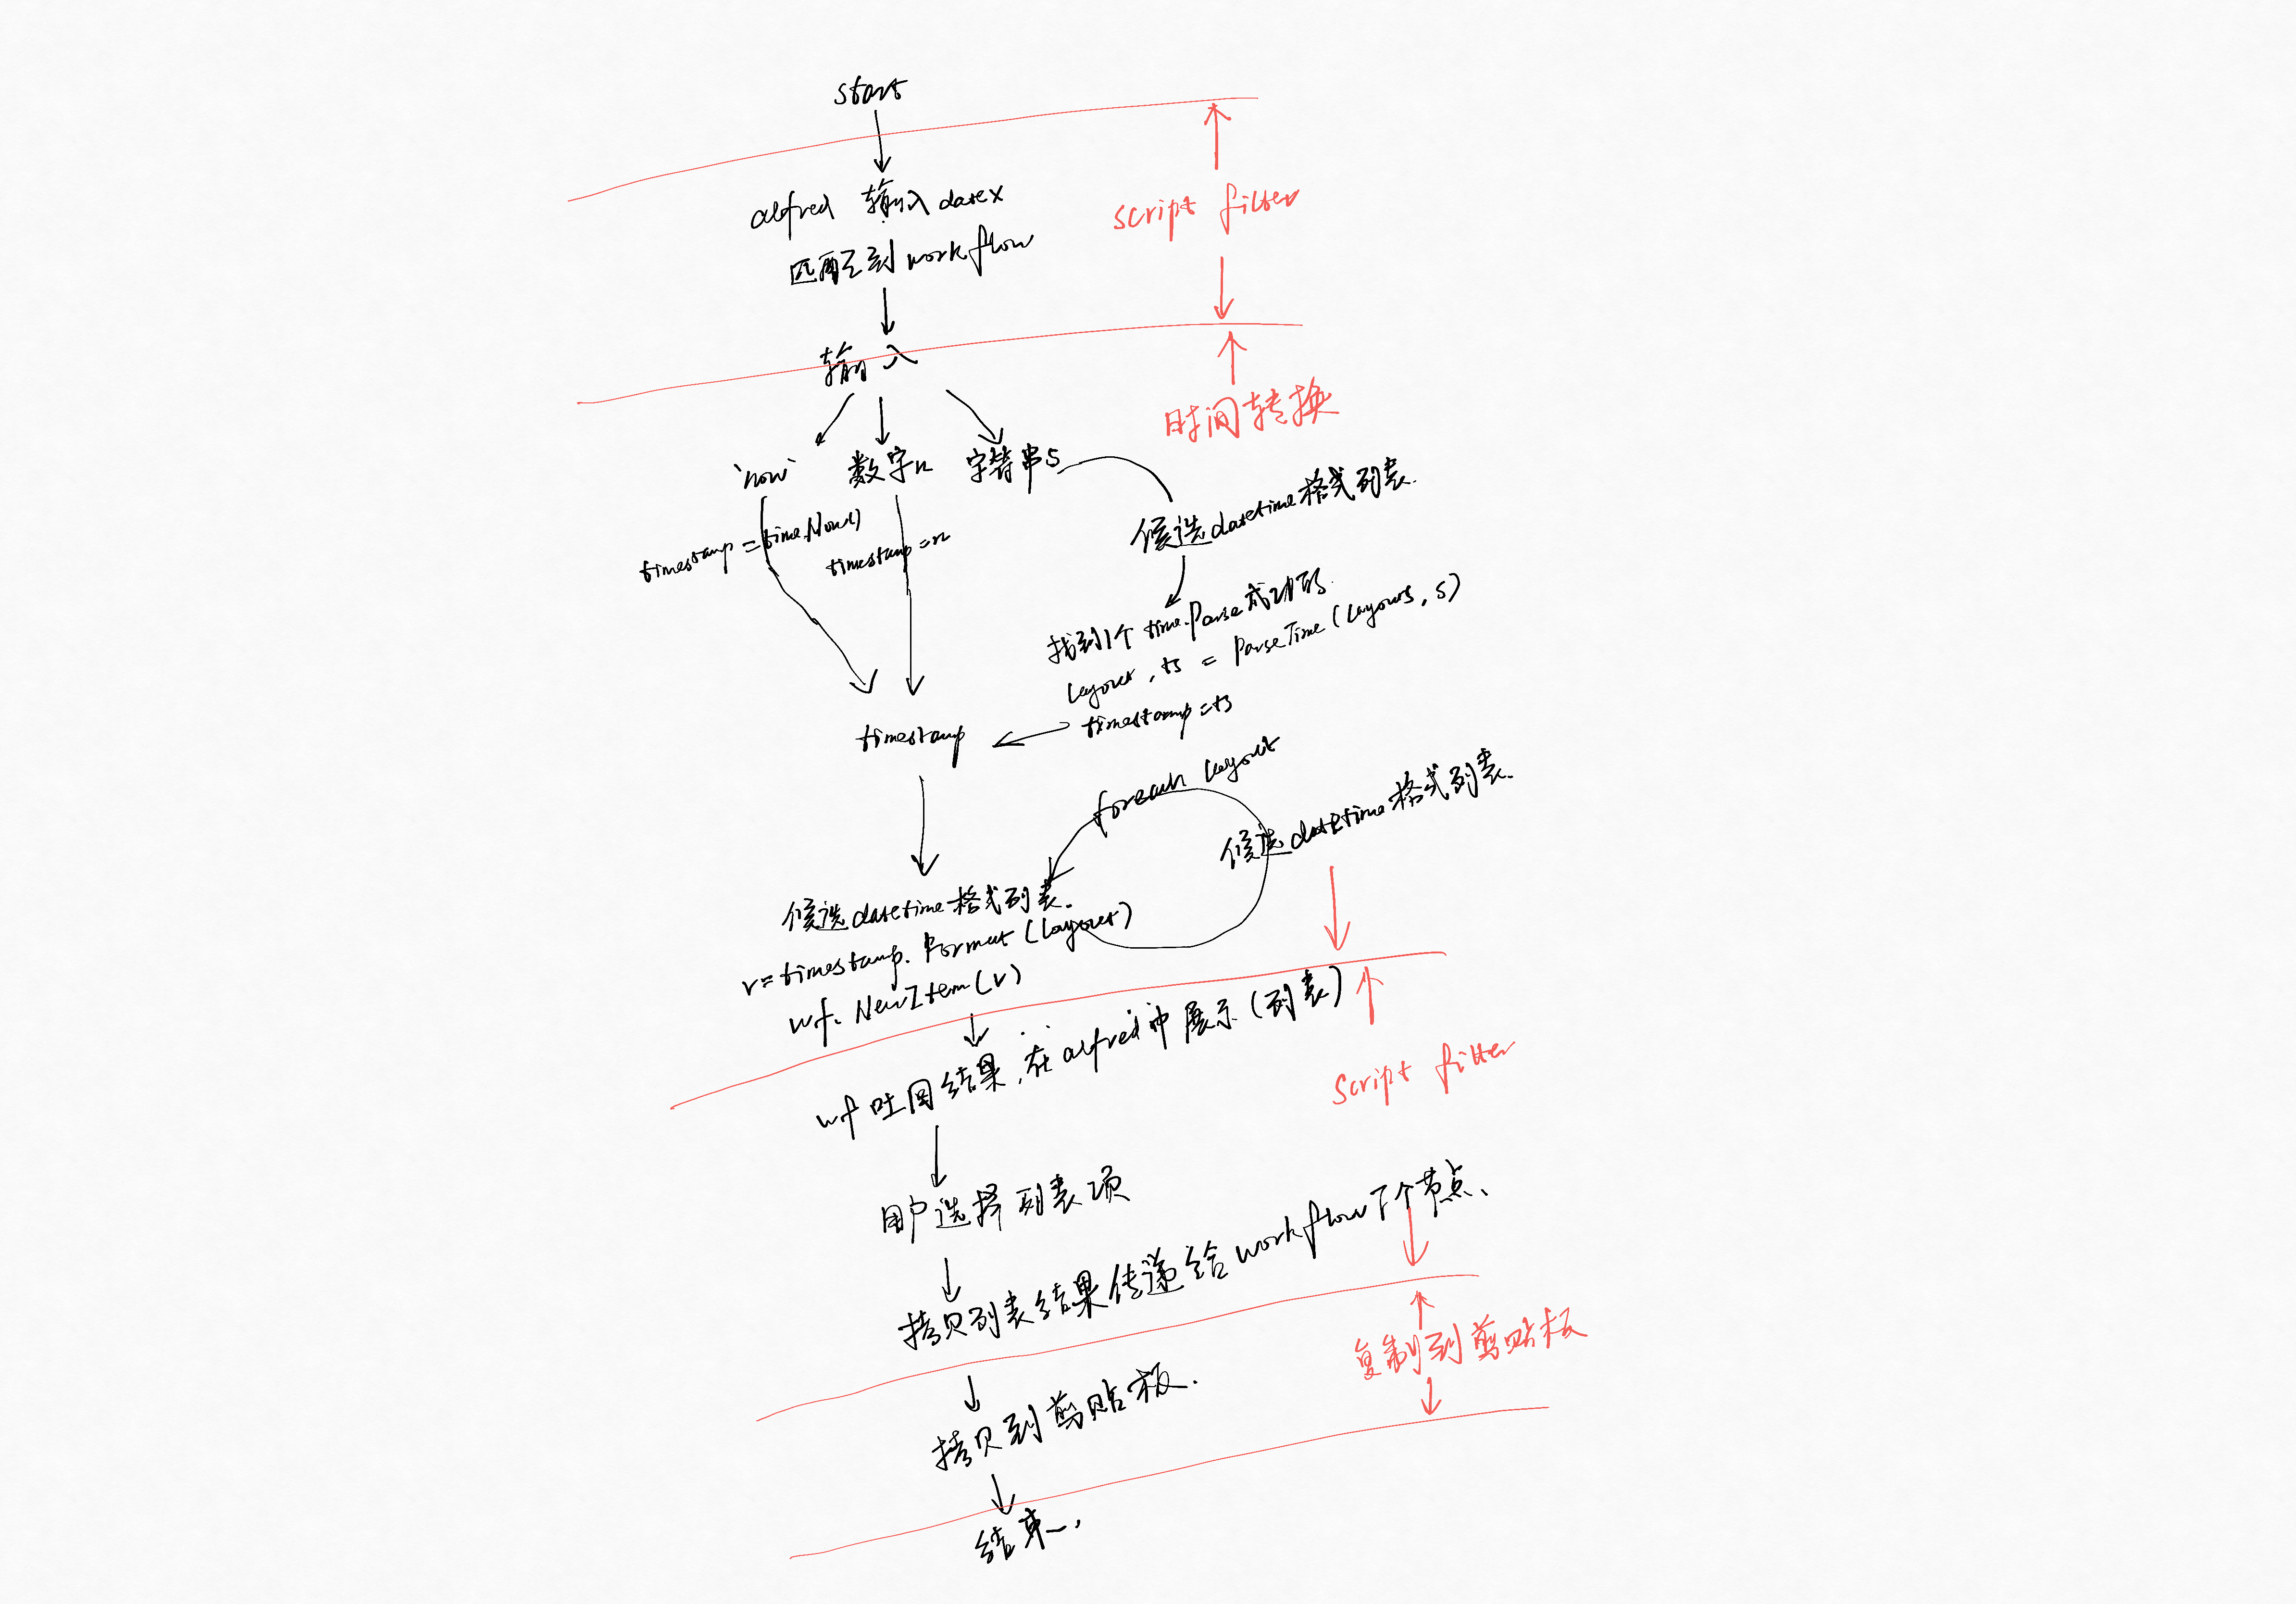 start
alfred 输入 datex
匹配到 workflow
script filter
输入
时间转换
`now`
数字n
字符串s
timestamp = time.Now()
timestamp = n
候选datetime格式列表.
找到1个 time.Parse成功的.
layout, ts = ParseTime(layouts, s)
timestamp = ts
timestamp
foreach layout
候选datetime格式列表.
候选datetime格式列表.
r = timestamp. Format (layout)
wf. NewItem(r)
wf 吐回结果, 在alfred中展示(列表)
script filter
用户选择列表项
拷贝列表结果传递给workflow下个节点、
复制到剪贴板
拷贝到剪贴板.
结束.